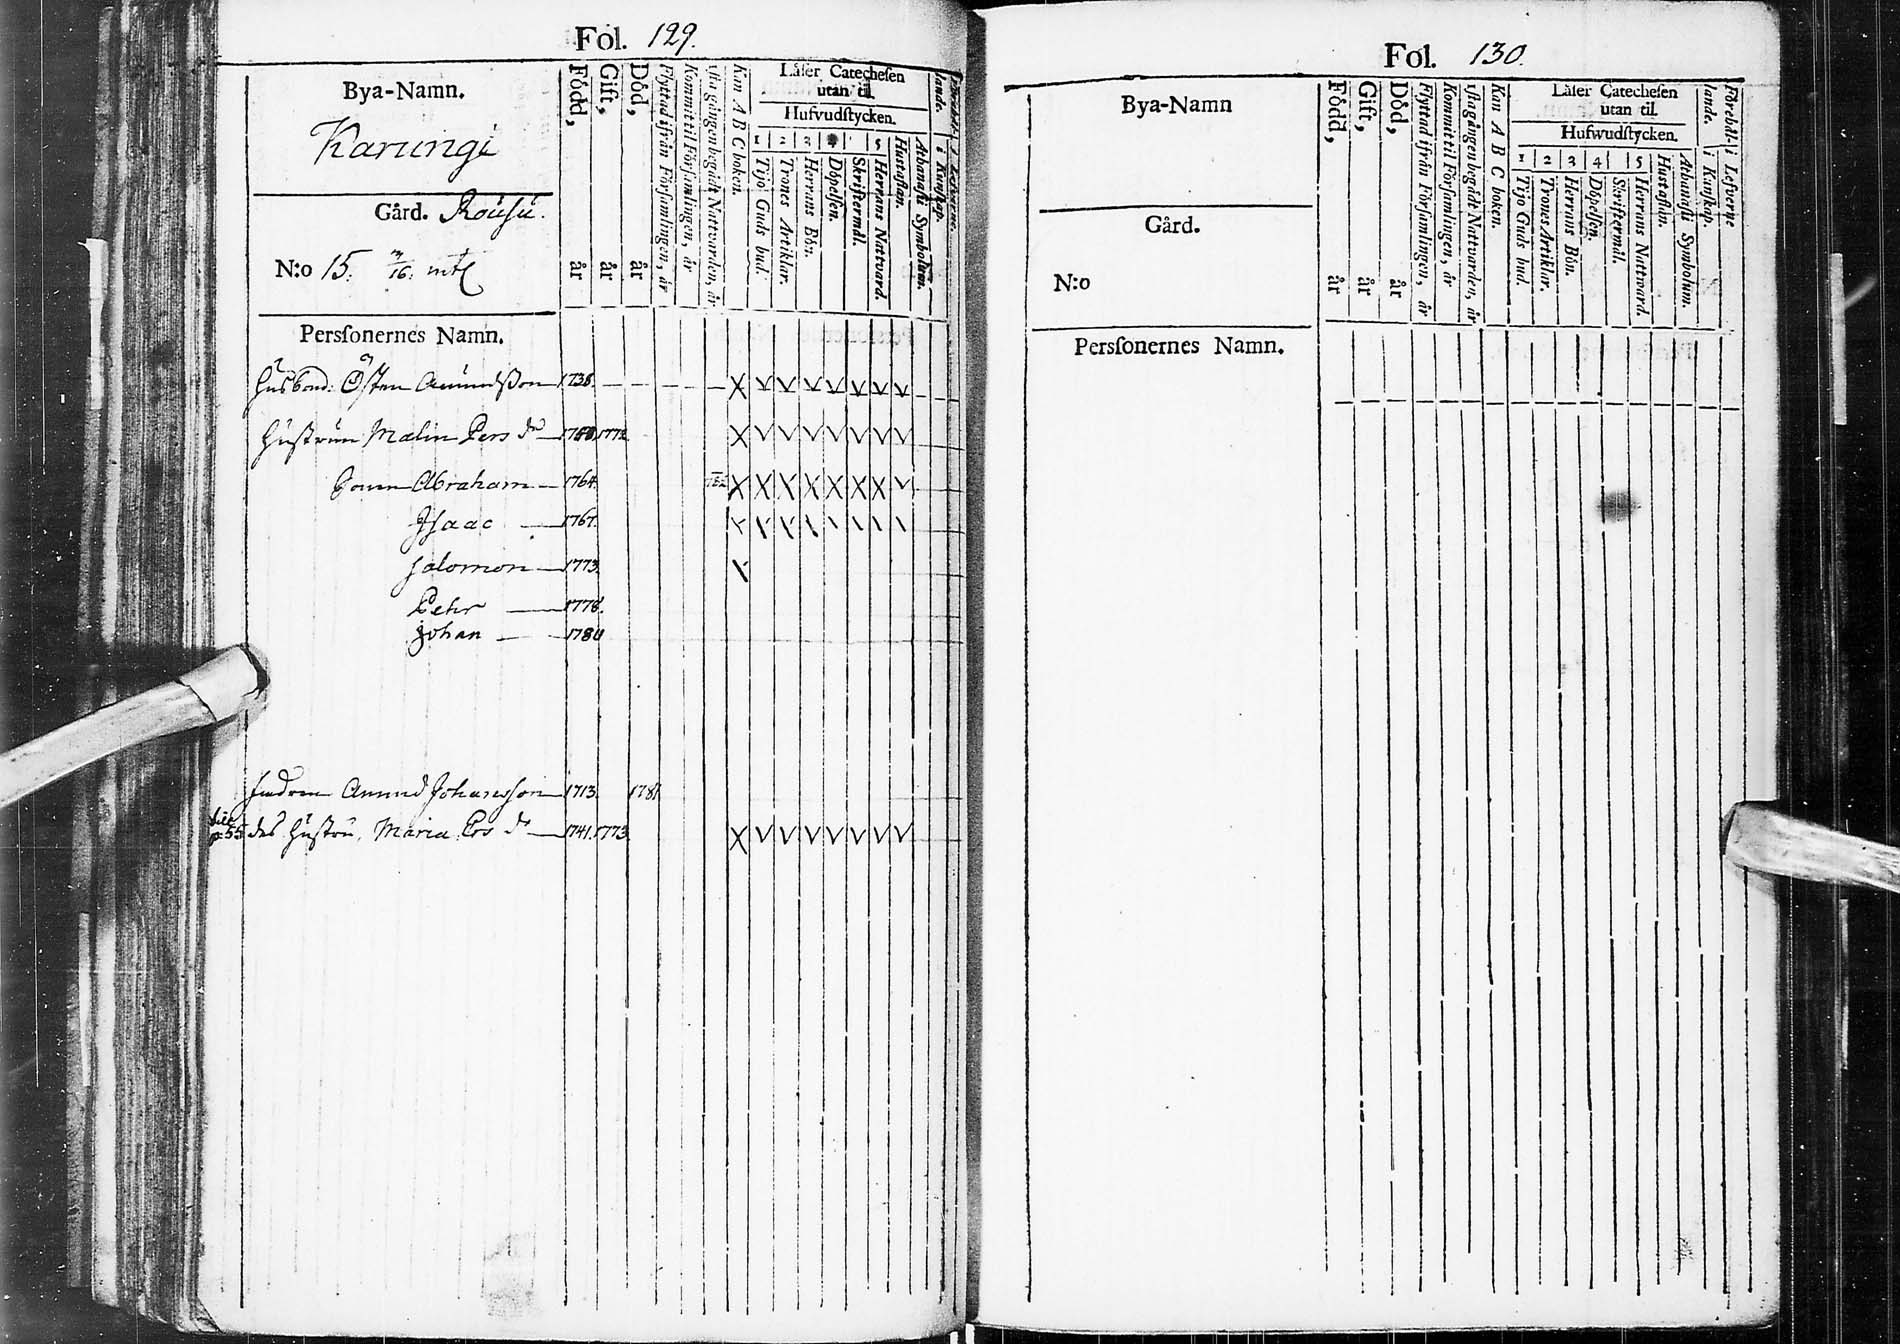 Fol. 129.
Bya-Namn.
Karungi
Gård. Rousu.
N:o 15. /16. mtl
Född, år
Gift, år
Död, år
Flyttad ifrån Församlingen, år
Kommit til Församlingen, år
Kan A B C boken.
Låser Catechesen
utan til.
Hufvudstycken.
1 2 3 5
Tijo Guds bud.
Trones Artiklar.
Herrans Bön.
Döpelsen.
Skriftermål.
Herrans Nattvard.
Hustaflan.
Athanasii Symbolum.
i Kunskap.
Perssonernes Namn.
Husbond: Östen Amundsson 1738.
Hustrun Malin Pers dr 1772
Sonen Abraham 1764.
Isaac 1767.
Salomon 1773.
Pehr 1778.
Johan 1781
Fadren Amund Johansson 1713. 1781
p 55 des hustru, Maria Pers dr 1741. 1773
Fol. 130.
Bya-Namn
Gård.
N:o
Född, år
Gift, år
Död, år
Flyttad ifrån Församlingen, år
Kommit til Församlingen, år
Kan A B C boken.
Låser Catechesen
utan til.
Hufwudstycken.
1 2 3 4 5
Tijo Guds bud.
Trones Artiklar.
Herrans Bön.
Döpelsen.
Skriftermål.
Herrans Nattvard.
Hustaflan.
Athanasii Symbolum.
Förehållande.
i Kunskap.
i Lefverne
Perssonernes Namn.